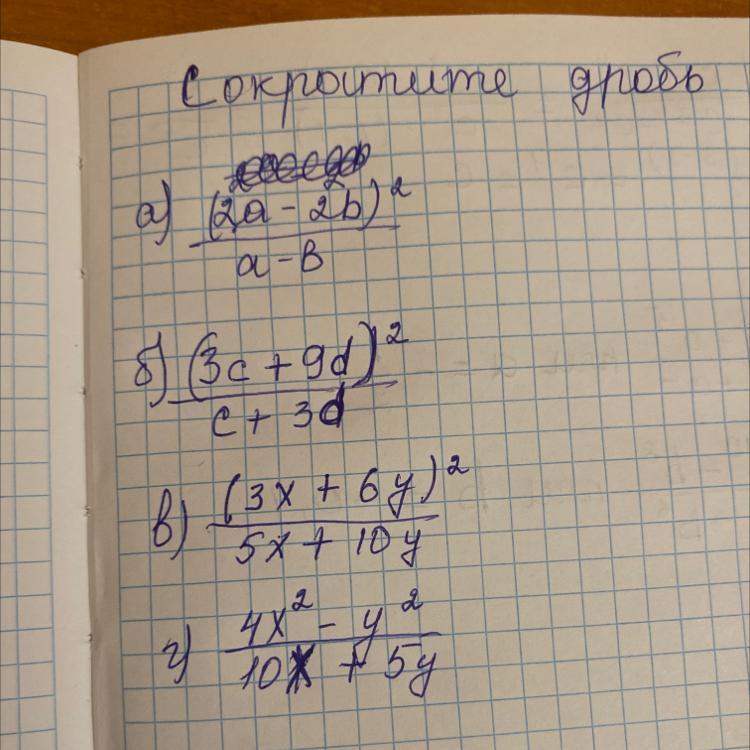 Сократите дробь
а) (2a - 2b)²
a - в
б) (3c + 9d)²
c + 3d
в) (3x + 6y)²
5x + 10y
г) 4x² - y²
10x + 5y